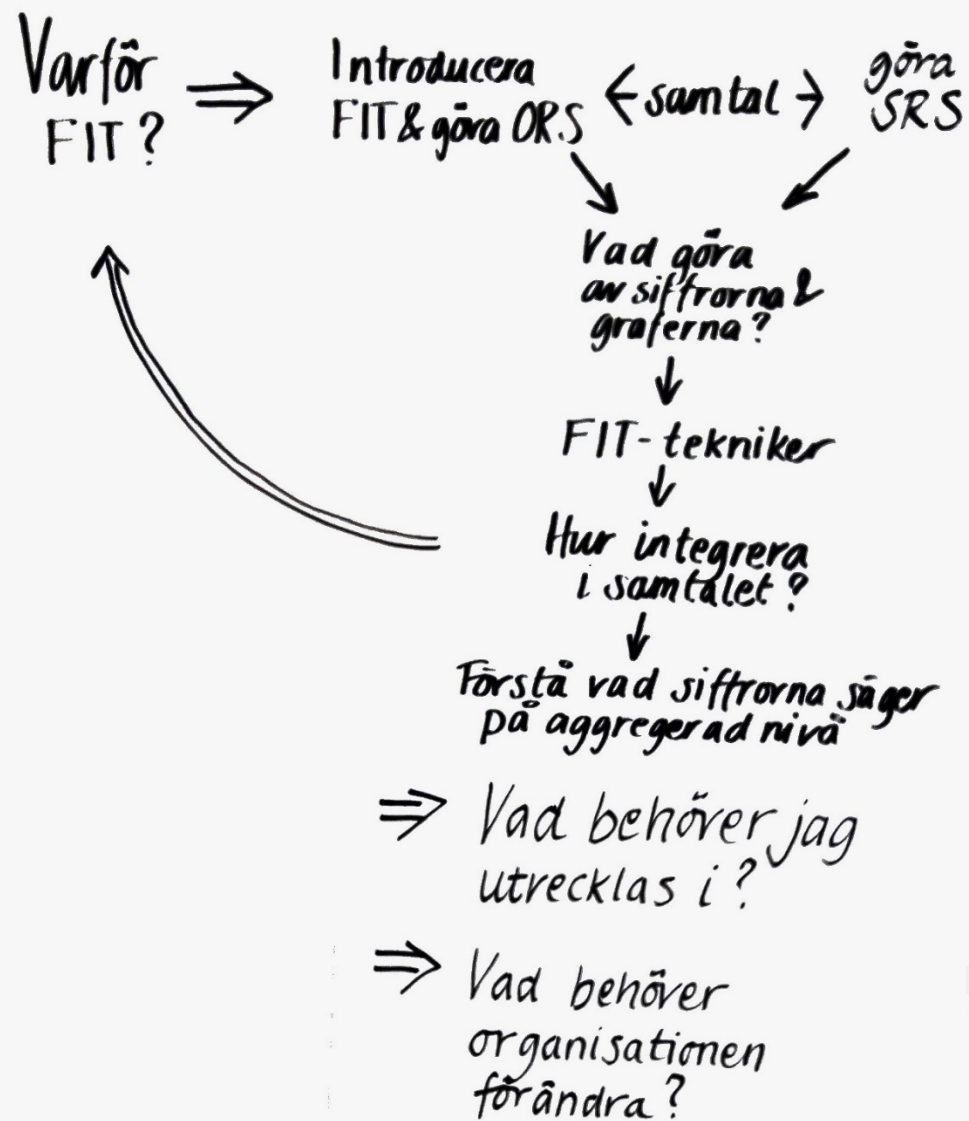 Varför
FIT?
⇒
Introducera
FIT & göra ORS
← samtal →
göra
SRS
Vad göra
av siffrorna &
graferna?
↓
FIT-tekniker
↓
Hur integrera
i samtalet?
↓
Förstå vad siffrorna säger
på aggregerad nivå
⇒ Vad behöver jag
utvecklas i?
⇒ Vad behöver
organisationen
förändra?